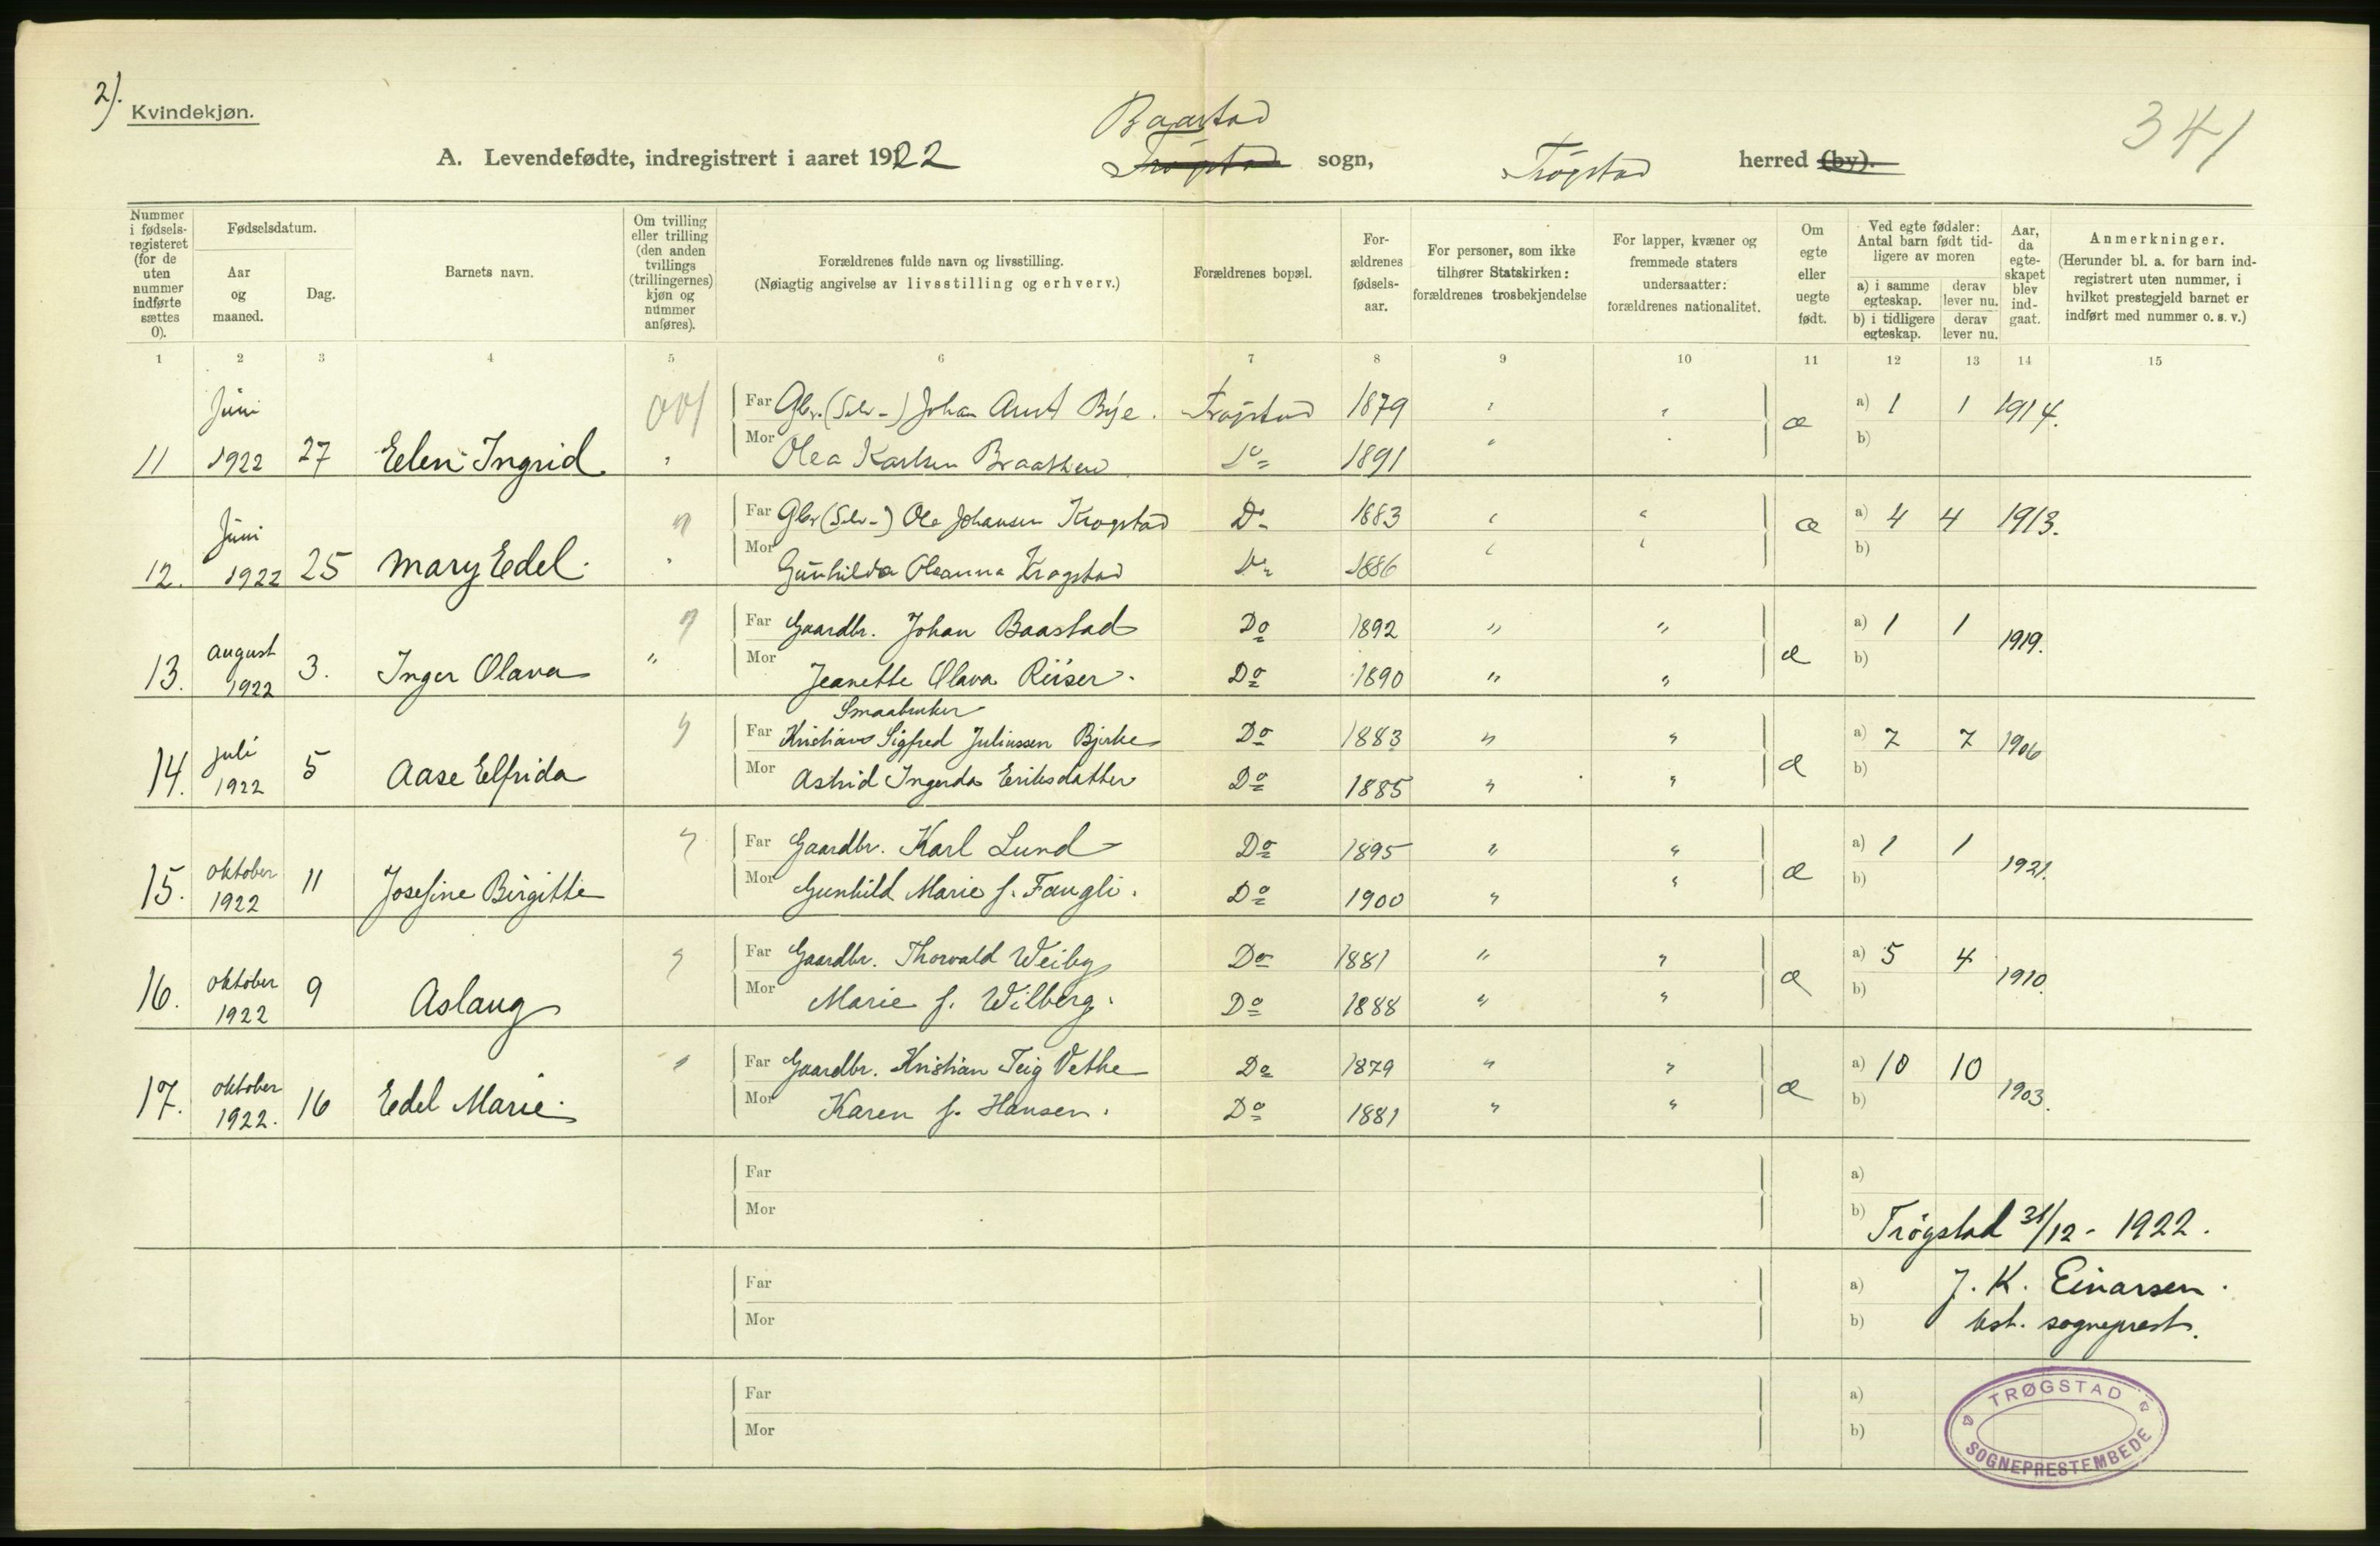 2).
Kvindekjøn.
341
Baastad
A. Levendefødte, indregistrert i aaret 1922 Trøgstad sogn, Trøgstad herred (by).
Nummer i fødselsregisteret (for de uten nummer indførte sættes 0).
Fødselsdatum.
Aar og maaned.
Dag.
Barnets navn.
Om tvilling eller trilling (den anden tvillings (trillingernes) kjøn og nummer anføres).
Forældrenes fulde navn og livsstilling.
(Nøiagtig angivelse av livsstilling og erhverv.)
Forældrenes bopæl.
Forældrenes fødselsaar.
For personer, som ikke tilhører Statskirken: forældrenes trosbekjendelse
For lapper, kvæner og fremmede staters undersaatter: forældrenes nationalitet.
Om egte eller uegte født.
Ved egte fødsler: Antal barn født tidligere av moren
a) i samme egteskap. derav lever nu.
b) i tidligere egteskap. derav lever nu.
Aar, da egteskapet blev indgaat.
Anmerkninger.
(Herunder bl. a. for barn indregistrert uten nummer, i hvilket prestegjeld barnet er indført med nummer o. s. v.)
1 2 3 4 5 6 7 8 9 10 11 12 13 14 15
Juni 001 Far Gbr. (Selv-) Johan Arnt Bye. Trøgstad 1879 " " æ a) 1 1 1914.
11 1922 27 Eelen Ingrid. " Mor Olea Karlsen Braathen Do 1891 " b)
Juni " Far Gbr (Selv-) Ole Johansen Krogstad Do 1883 " " æ a) 4 4 1913.
12. 1922 25 Mary Edel. " Mor Gunhilda Oleanna Krogstad Do 1886 " " b)
august " Far Gaardbr. Johan Baastad Do 1892 " " æ a) 1 1 1919.
13. 1922 3. Inger Olava " Mor Jeanette Olava Riiser. Do 1890 " " b)
Smaabruker
juli " Far Kristians Sigfred Juliussen Bjerke Do 1883 " " æ a) 7 7 1906
14. 1922 5 Aase Elfrida Mor Astrid Ingerda Eriksdatter Do 1885 " " b)
oktober " Far Gaardbr. Karl Lund Do 1895 " " æ a) 1 1 1921.
15. 1922 11 Josefine Birgitte Mor Gunhild Marie f. Faugli. Do 1900 " " b)
oktober " Far Gaardbr. Thorvald Weiby Do 1881 " " æ a) 5 4 1910.
16. 1922 9 Aslaug Mor Marie f. Wilberg. Do 1888 " " b)
oktober " Far Gaardbr. Kristian Teig Vethe Do 1879 " " æ a) 10 10 1903.
17. 1922. 16 Edel Marie. Mor Karen f. Hansen. Do 1881 " " b)
Far a)
Mor b)
Trøgstad 31/12 - 1922.
Far a) J. K. Einarsen.
Mor b) bst. sogneprest.
Far a)
Mor b)
TRØGSTAD
SOGNEPRESTEMBEDE